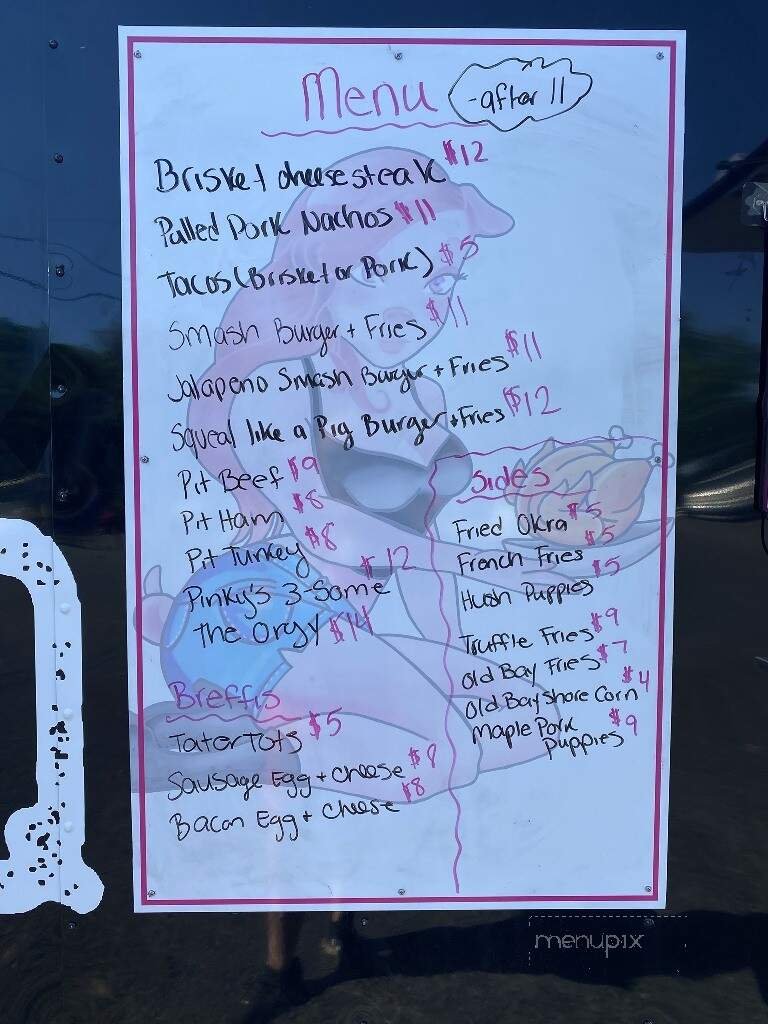 Menu -after 11
Brisket cheesesteak $12
Pulled Pork Nachos $11
Tacos (Brisket or Pork) $5
Smash Burger + Fries $11
Jalapeno Smash Burger + Fries $11
Squeal like a Pig Burger + Fries $12
Pit Beef $9
Pit Ham $8
Pit Turkey $8
Pinky's 3-Some $12
the Orgy $14
Breffis
Tater Tots $5
Sausage Egg + cheese $8
Bacon Egg + Cheese $8
Sides
Fried Okra $5
French Fries $5
Hush Puppies $5
Truffle Fries $9
Old Bay Fries $7
Old Bay Shore Corn $4
Maple Pork $9
Puppies
menupix